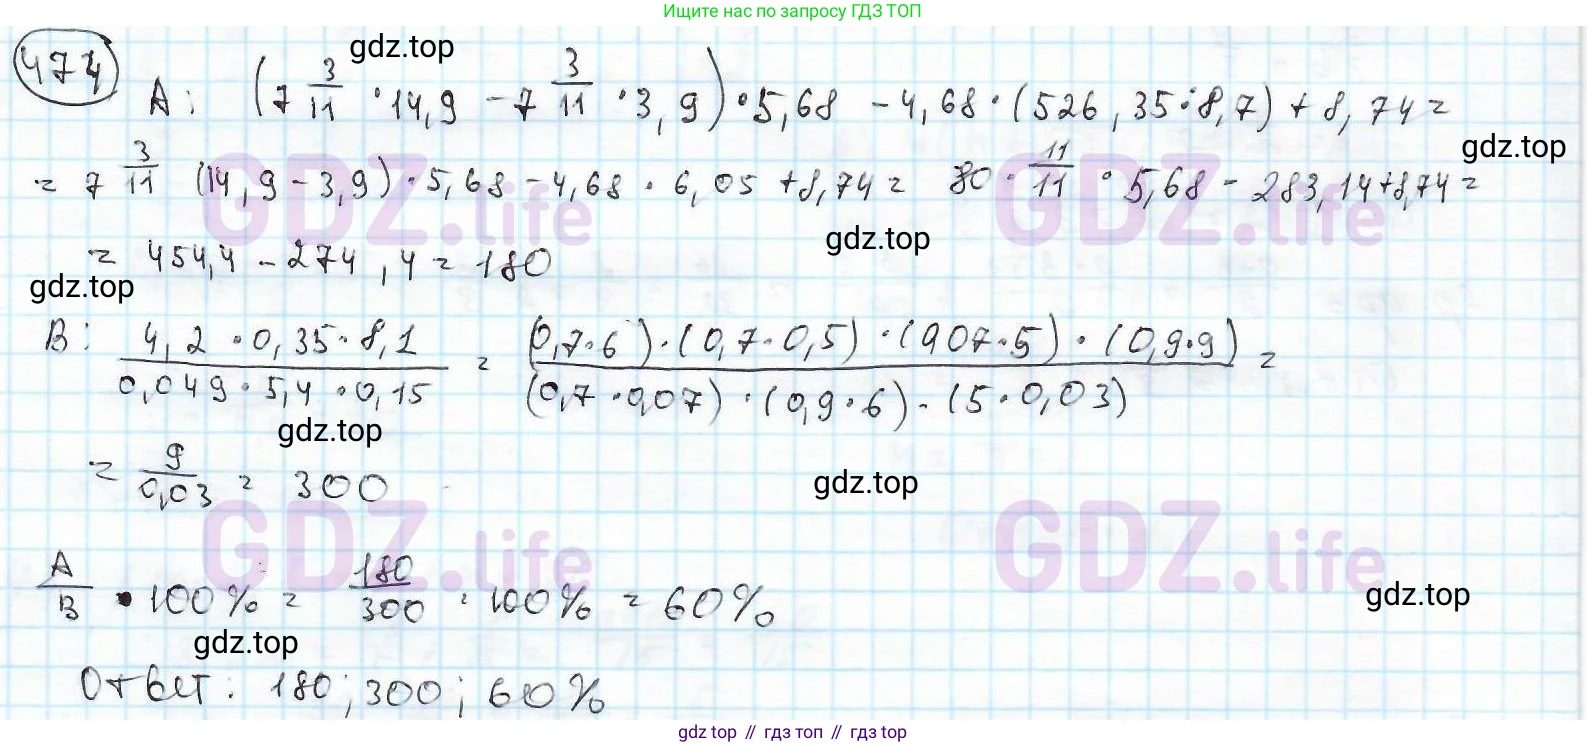 Ищите нас по запросу ГДЗ ТОП
474
gdz.top
А: (7 3/11 · 14,9 - 7 3/11 · 3,9) · 5,68 - 4,68 · (526,35 : 8,7) + 8,74 =
gdz.top
= 7 3/11 (14,9 - 3,9) · 5,68 - 4,68 · 6,05 + 8,74 = 80 · 11/11 · 5,68 - 283,14 + 8,74 =
GDZ.life GDZ.life
gdz.top
= 454,4 - 274,4 = 180
gdz.top
В: 4,2 · 0,35 · 8,1 / 0,049 · 5,4 · 0,15 = (0,7 · 6) · (0,7 · 0,5) · (907 · 5) · (0,9 · 9) / (0,7 · 0,07) · (0,9 · 6) · (5 · 0,03) =
gdz.top
= 9/0,03 = 300
gdz.top
GDZ.life GDZ.life
А/В · 100% = 180/300 · 100% = 60%
gdz.top
gdz.top
Ответ: 180; 300; 60%
gdz.top // гдз топ // gdz.top